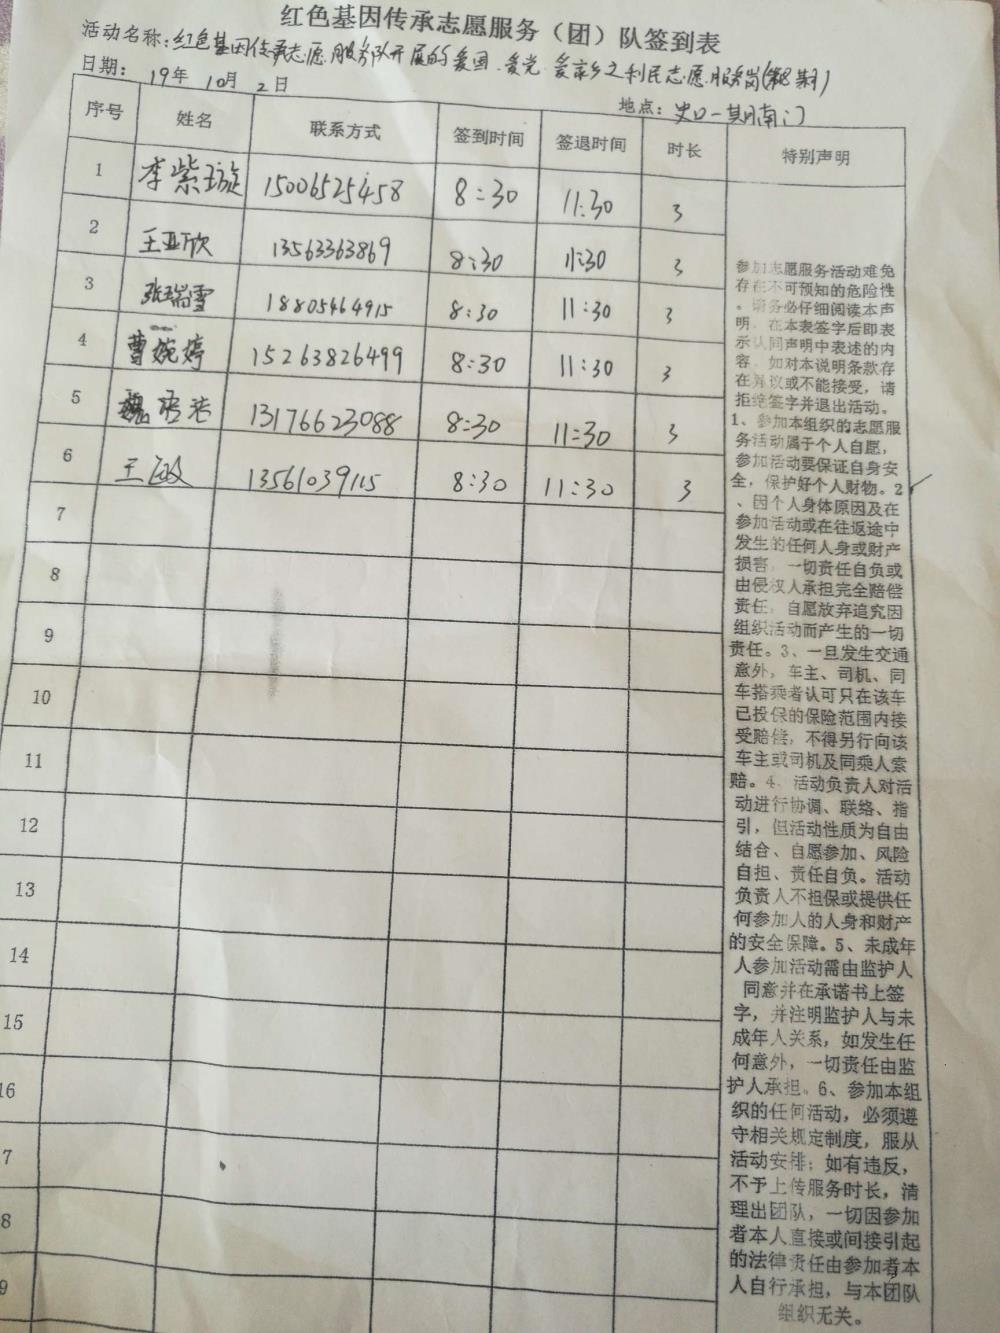 红色基因传承志愿服务（团）队签到表
活动名称：红色基因传承志愿服务队开展的爱国、爱党、爱家乡之利民志愿服务岗
日期：19年10月2日
地点：史口一期南门
序号 姓名 联系方式 签到时间 签退时间 时长 特别声明
1 李紫璇 15006525458 8:30 11:30 3
2 王亚欣 13563363869 8:30 11:30 3
3 张瑞雪 18805464915 8:30 11:30 3
4 曹婉婷 15263826499 8:30 11:30 3
5 魏 13176623088 8:30 11:30 3
6 王 13561039115 8:30 11:30 3
7
8
9
10
11
12
13
14
15
16
7
8
9
参加志愿服务活动难免
存在不可预知的危险性
。请务必仔细阅读本声
明，在本表签字后即表
示认同声明中表述的内
容，如对本说明条款存
在异议或不能接受，请
拒绝签字并退出活动。
1、参加本组织的志愿服
务活动属于个人自愿，
参加活动要保证自身安
全，保护好个人财物。2
、因个人身体原因及在
参加活动或在往返途中
发生的任何人身或财产
损害，一切责任自负或
由侵权人承担完全赔偿
责任，自愿放弃追究因
组织活动而产生的一切
责任。3、一旦发生交通
意外，车主、司机、同
车搭乘者认可只在该车
已投保的保险范围内接
受赔偿，不得另行向该
车主或司机及同乘人索
赔。4、活动负责人对活
动进行协调、联络、指
引，但活动性质为自由
结合、自愿参加、风险
自担、责任自负。活动
负责人不担保或提供任
何参加人的人身和财产
的安全保障。5、未成年
人参加活动需由监护人
同意并在承诺书上签
字，并注明监护人与未
成年人关系，如发生任
何意外，一切责任由监
护人承担。6、参加本组
织的任何活动，必须遵
守相关规定制度，服从
活动安排；如有违反，
不予上传服务时长，清
理出团队，一切因参加
者本人直接或间接引起
的法律责任由参加者本
人自行承担，与本团队
组织无关。